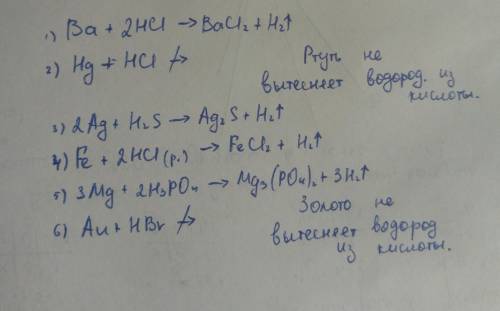 1) Ba + 2HCl → BaCl₂ + H₂↑
2) Hg + HCl ↛ Ртуть не
вытесняет водород. из
кислоты.
3) 2Ag + H₂S → Ag₂S + H₂↑
4) Fe + 2HCl(р.) → FeCl₂ + H₂↑
5) 3Mg + 2H₃PO₄ → Mg₃(PO₄)₂ + 3H₂↑
6) Au + HBr ↛ Золото не
вытесняет водород
из кислоты.